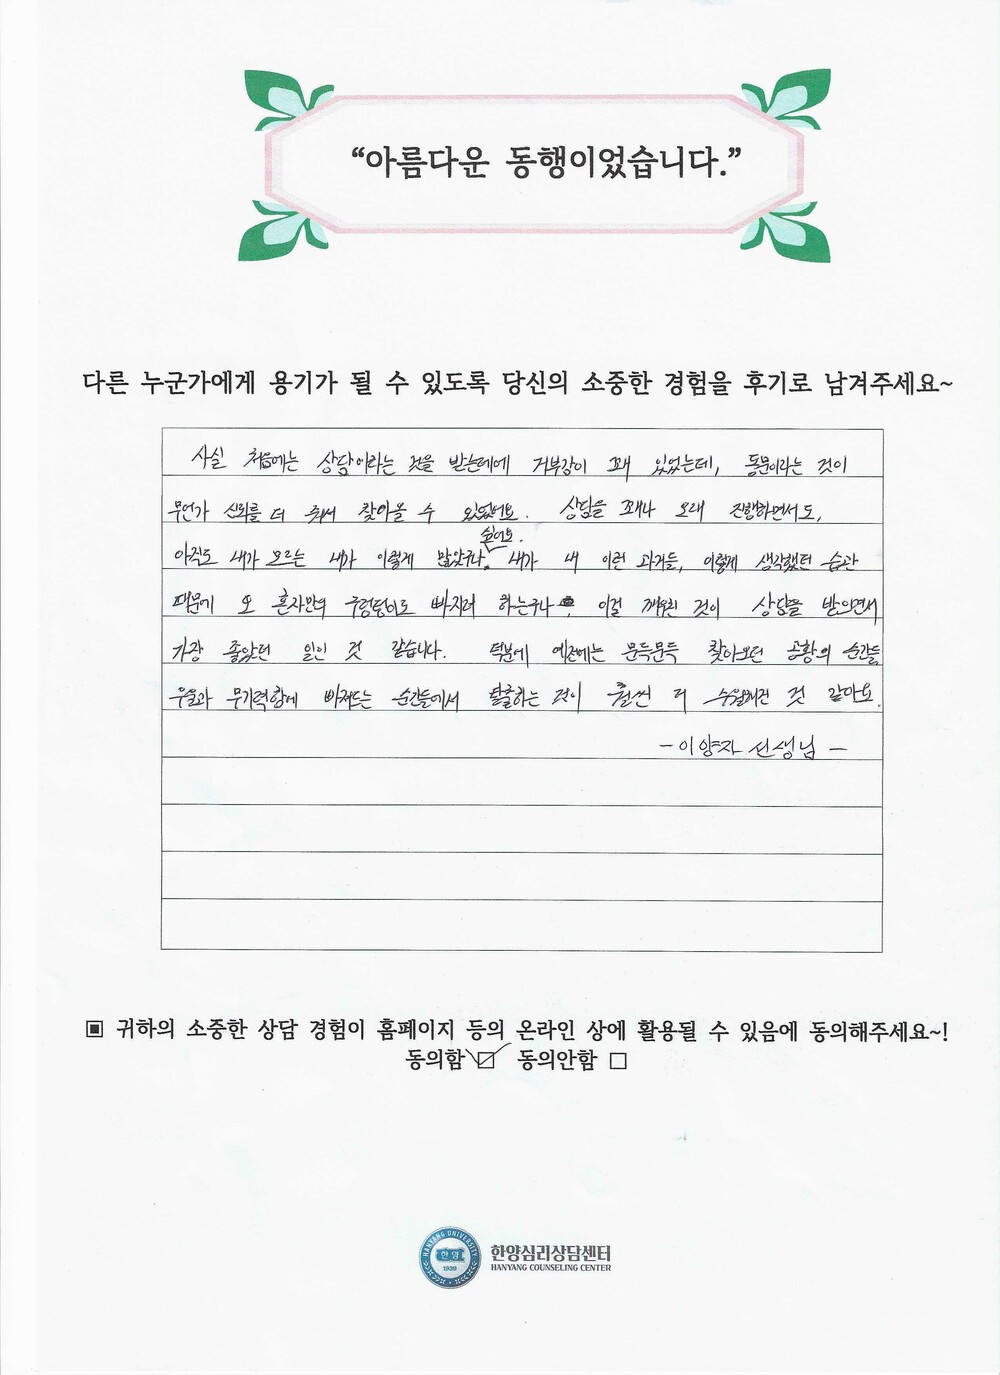 “아름다운 동행이었습니다.”
다른 누군가에게 용기가 될 수 있도록 당신의 소중한 경험을 후기로 남겨주세요~
사실 처음에는 상담이라는 것을 받는데에 거부감이 꽤 있었는데, 동문이라는 것이
무언가 신뢰를 더 줘서 찾아올 수 있었어요. 상담을 꽤나 오래 진행하면서도,
싶어요.
아직도 내가 모르는 내가 이렇게 많았구나, 내가 내 이런 과거들, 이렇게 생각했던 습관
때문에 또 혼자만의 구렁텅이로 빠지려 하는구나 이걸 깨우친 것이 상담을 받으면서
가장 좋았던 일인 것 같습니다. 덕분에 예전에는 문득문득 찾아오던 공황의 순간들
우울과 무기력함에 빠져드는 순간들에서 탈출하는 것이 훨씬 더 수월해진 것 같아요.
- 이양자 선생님 -
▣ 귀하의 소중한 상담 경험이 홈페이지 등의 온라인 상에 활용될 수 있음에 동의해주세요~!
동의함 ☑ 동의안함 □
HANYANG UNIVERSITY
한양
1939
한양심리상담센터
HANYANG COUNSELING CENTER